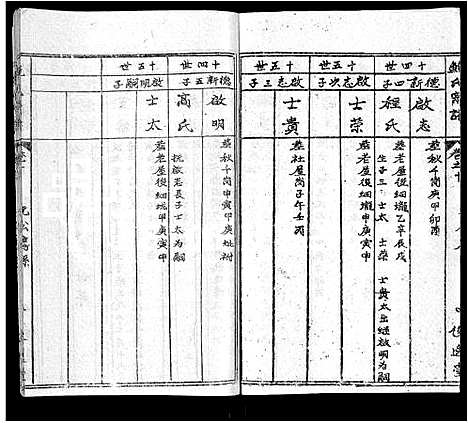 鮑氏宗譜
卷之十
十四世
德新四子
啟志
程氏
葬秋千崗甲卯酉
葬老屋後細壠乙辛辰戌
生子三 士太 士榮 士貴 太出繼啟明為嗣
十五世
啟志次子
士榮
葬老屋後細壠申庚寅甲
十五世
啟志三子
士貴
葬社屋崗子午壬丙
十四世
德新五子
啟明
高氏
葬秋千崗寅甲庚
撫啟志長子士太為嗣
十五世
啟明嗣子
士太
葬老屋後細壠甲庚寅申